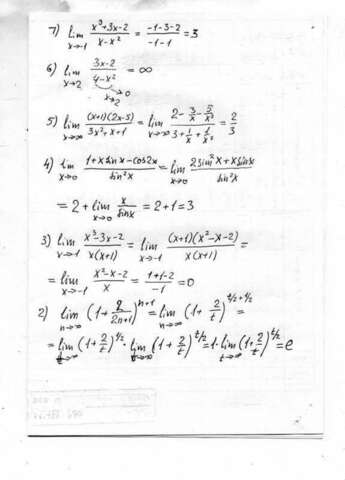 7) lim x→-1 (x³+3x-2)/(x-x²) = (-1-3-2)/(-1-1) = 3
6) lim x→2 (3x-2)/(4-x²) = ∞
→0
x→2
5) lim x→∞ (x+1)(2x-5)/(3x²+x+1) = lim x→∞ (2-3/x-5/x²)/(3+1/x+1/x²) = 2/3
4) lim x→0 (1+x sin x-cos2x)/(sin²x) = lim x→0 (2sin²x+x sin x)/(sin²x)
= 2 + lim x→0 x/(sin x) = 2+1 = 3
3) lim x→-1 (x³-3x-2)/(x(x+1)) = lim x→-1 (x+1)(x²-x-2)/(x(x+1)) =
= lim x→-1 (x²-x-2)/x = (1+1-2)/(-1) = 0
2) lim n→∞ (1+2/(2n+1))ⁿ⁺¹ = lim n→∞ (1+2/t)^(t/2+1/2) =
= lim t→∞ (1+2/t)^(1/2) · lim t→∞ (1+2/t)^(t/2) = 1·lim t→∞ (1+2/t)^(t/2) = e